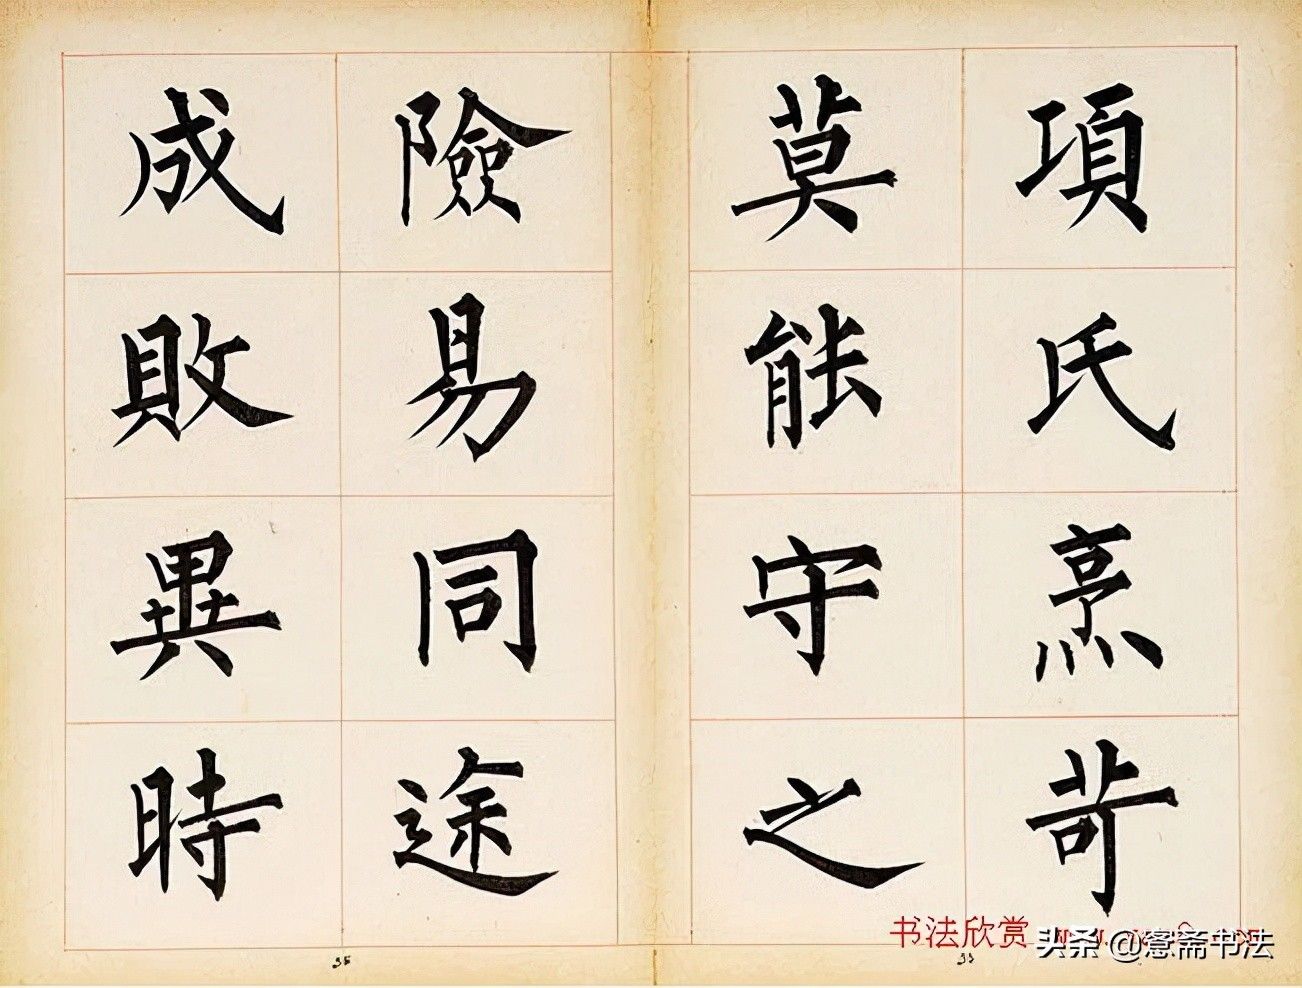 項氏烹苛
莫能守之
險易同途
成敗異時
书法欣赏
头条 @愙斋书法
35
33